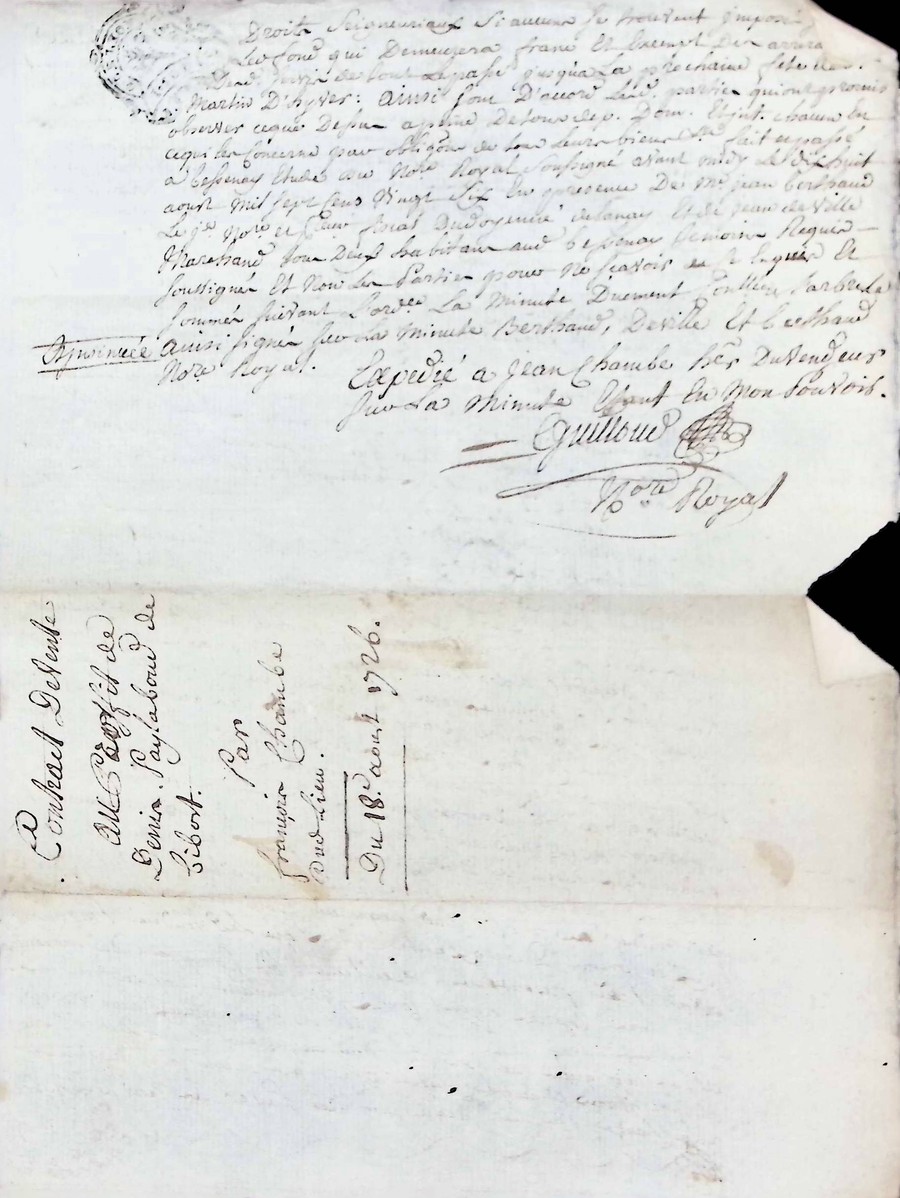 Droits Seigneuriaux si aucuns se trouvent imposés
le fond qui Demeurera franc Et Exempt Des arrera
de tout Lepassé jusqua La prochaine fête de
Martin D'hyver: ainsi sont D'accord Lesd. parties quiont promis
observer ceque Dessus apeine Detous dep. Dom. Et jnt. chacun En
cequi les Concerne par oblig.on de tous leurs biens fait et passé
a bessenay Etude du No.re Royal soussigné avant midy Le dix huit
aoust Mil sept Cens Vingt Six En presence De M.e jean berthaud
Le j.e No.re et fiscal delanay Et de jean deville
Marchand tous Deux habitans aud bessenay temoins Requis
soussignés Et Non les Parties pour Ne sçavoir de ce Enquis Et
sommés suivant l'ord.ce La Minute Duement Contrôlée Larbresle
Ainsi signés sur La Minute Berthaud, Deville Et berthaud
No.re Royal.
Expedié a Jean Chambe her Duvendeur
sur La Minute Etant En Mon pouvoir.
Guilloud
No.re Royal
Contract DeVente
au Proffit de
Denis Paylaboud de
bibost.
Par
françois Chambe
Dud Lieu.
Du 18.e aoust 1726.